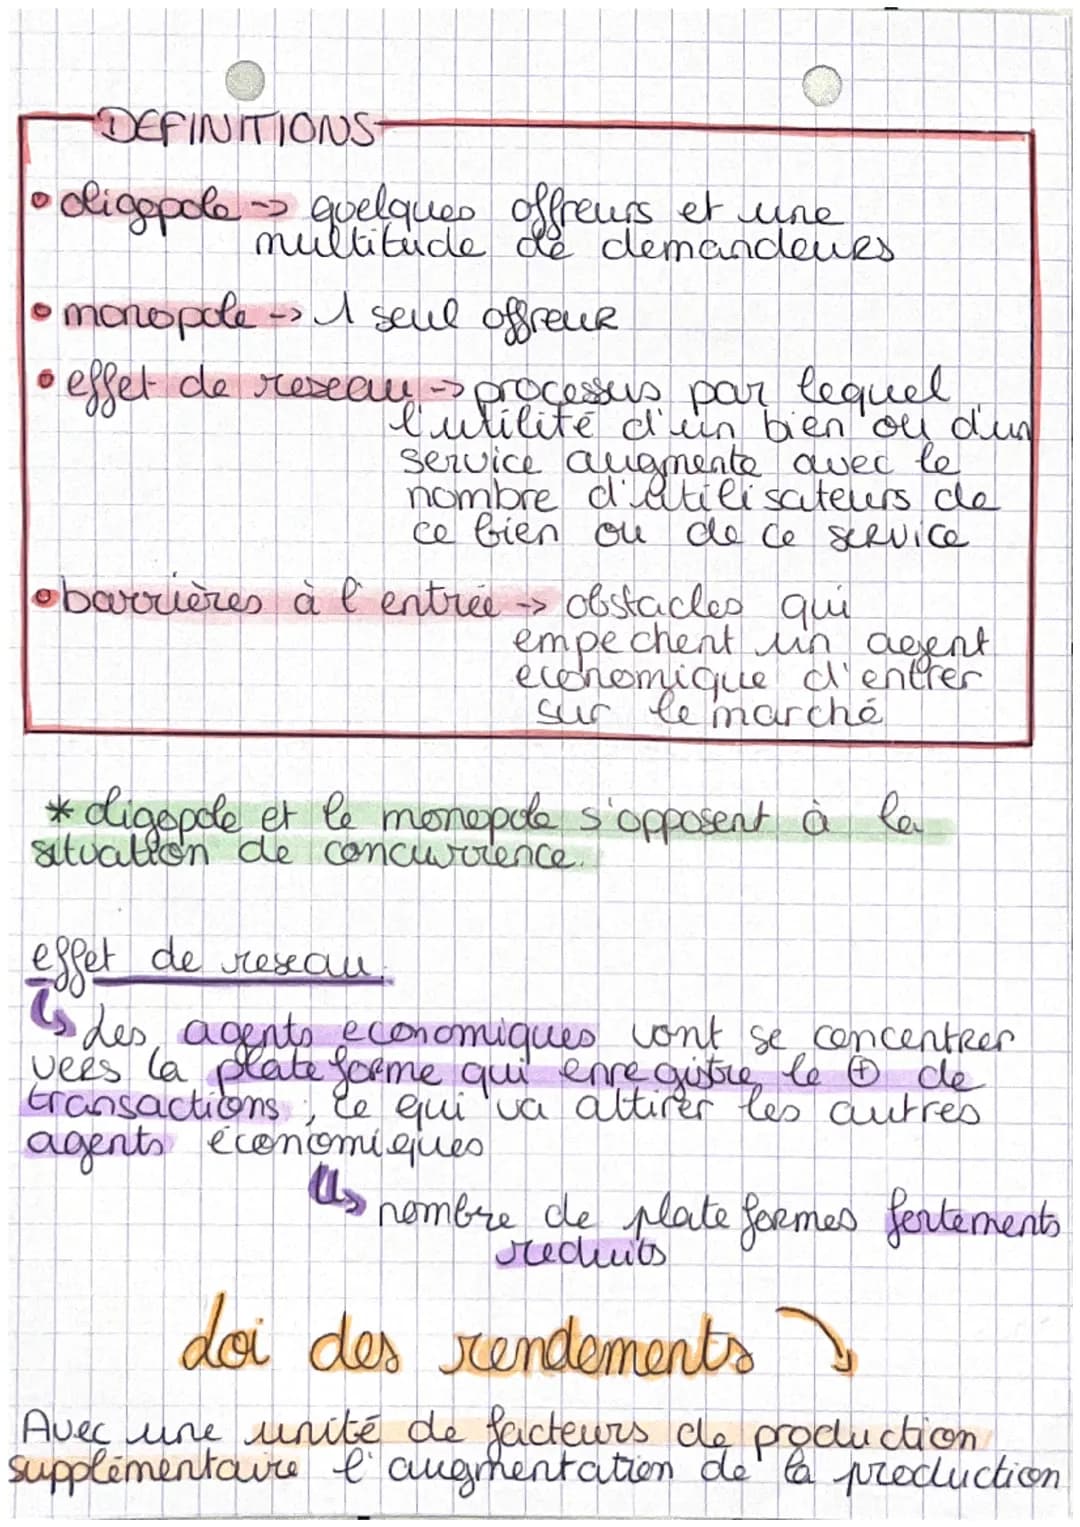 DEFINITIONS
• oligopole -> quelques offreurs et une
multitude de demandeurs
• monopole -> 1 seul offreur
• effet de reseau -> processus par lequel
l'utilité d'un bien ou d'un
service augmente avec le
nombre d'utilisateurs de
ce bien ou de ce service
• barrières à l'entrée -> obstacles qui
empechent un agent
economique d'entrer
sur le marché
* oligopole et le monopole s'opposent à la
situation de concurrence.
effet de reseau.
↳ des agents economiques vont se concentrer
vers la plateforme qui enregistre le ⊕ de
transactions, ce qui va attirer les autres
agents économiques
↳ nombre de plateformes fortements
reduits
Loi des rendements ↘
Avec une unité de facteurs de production
supplémentaire l'augmentation de la production